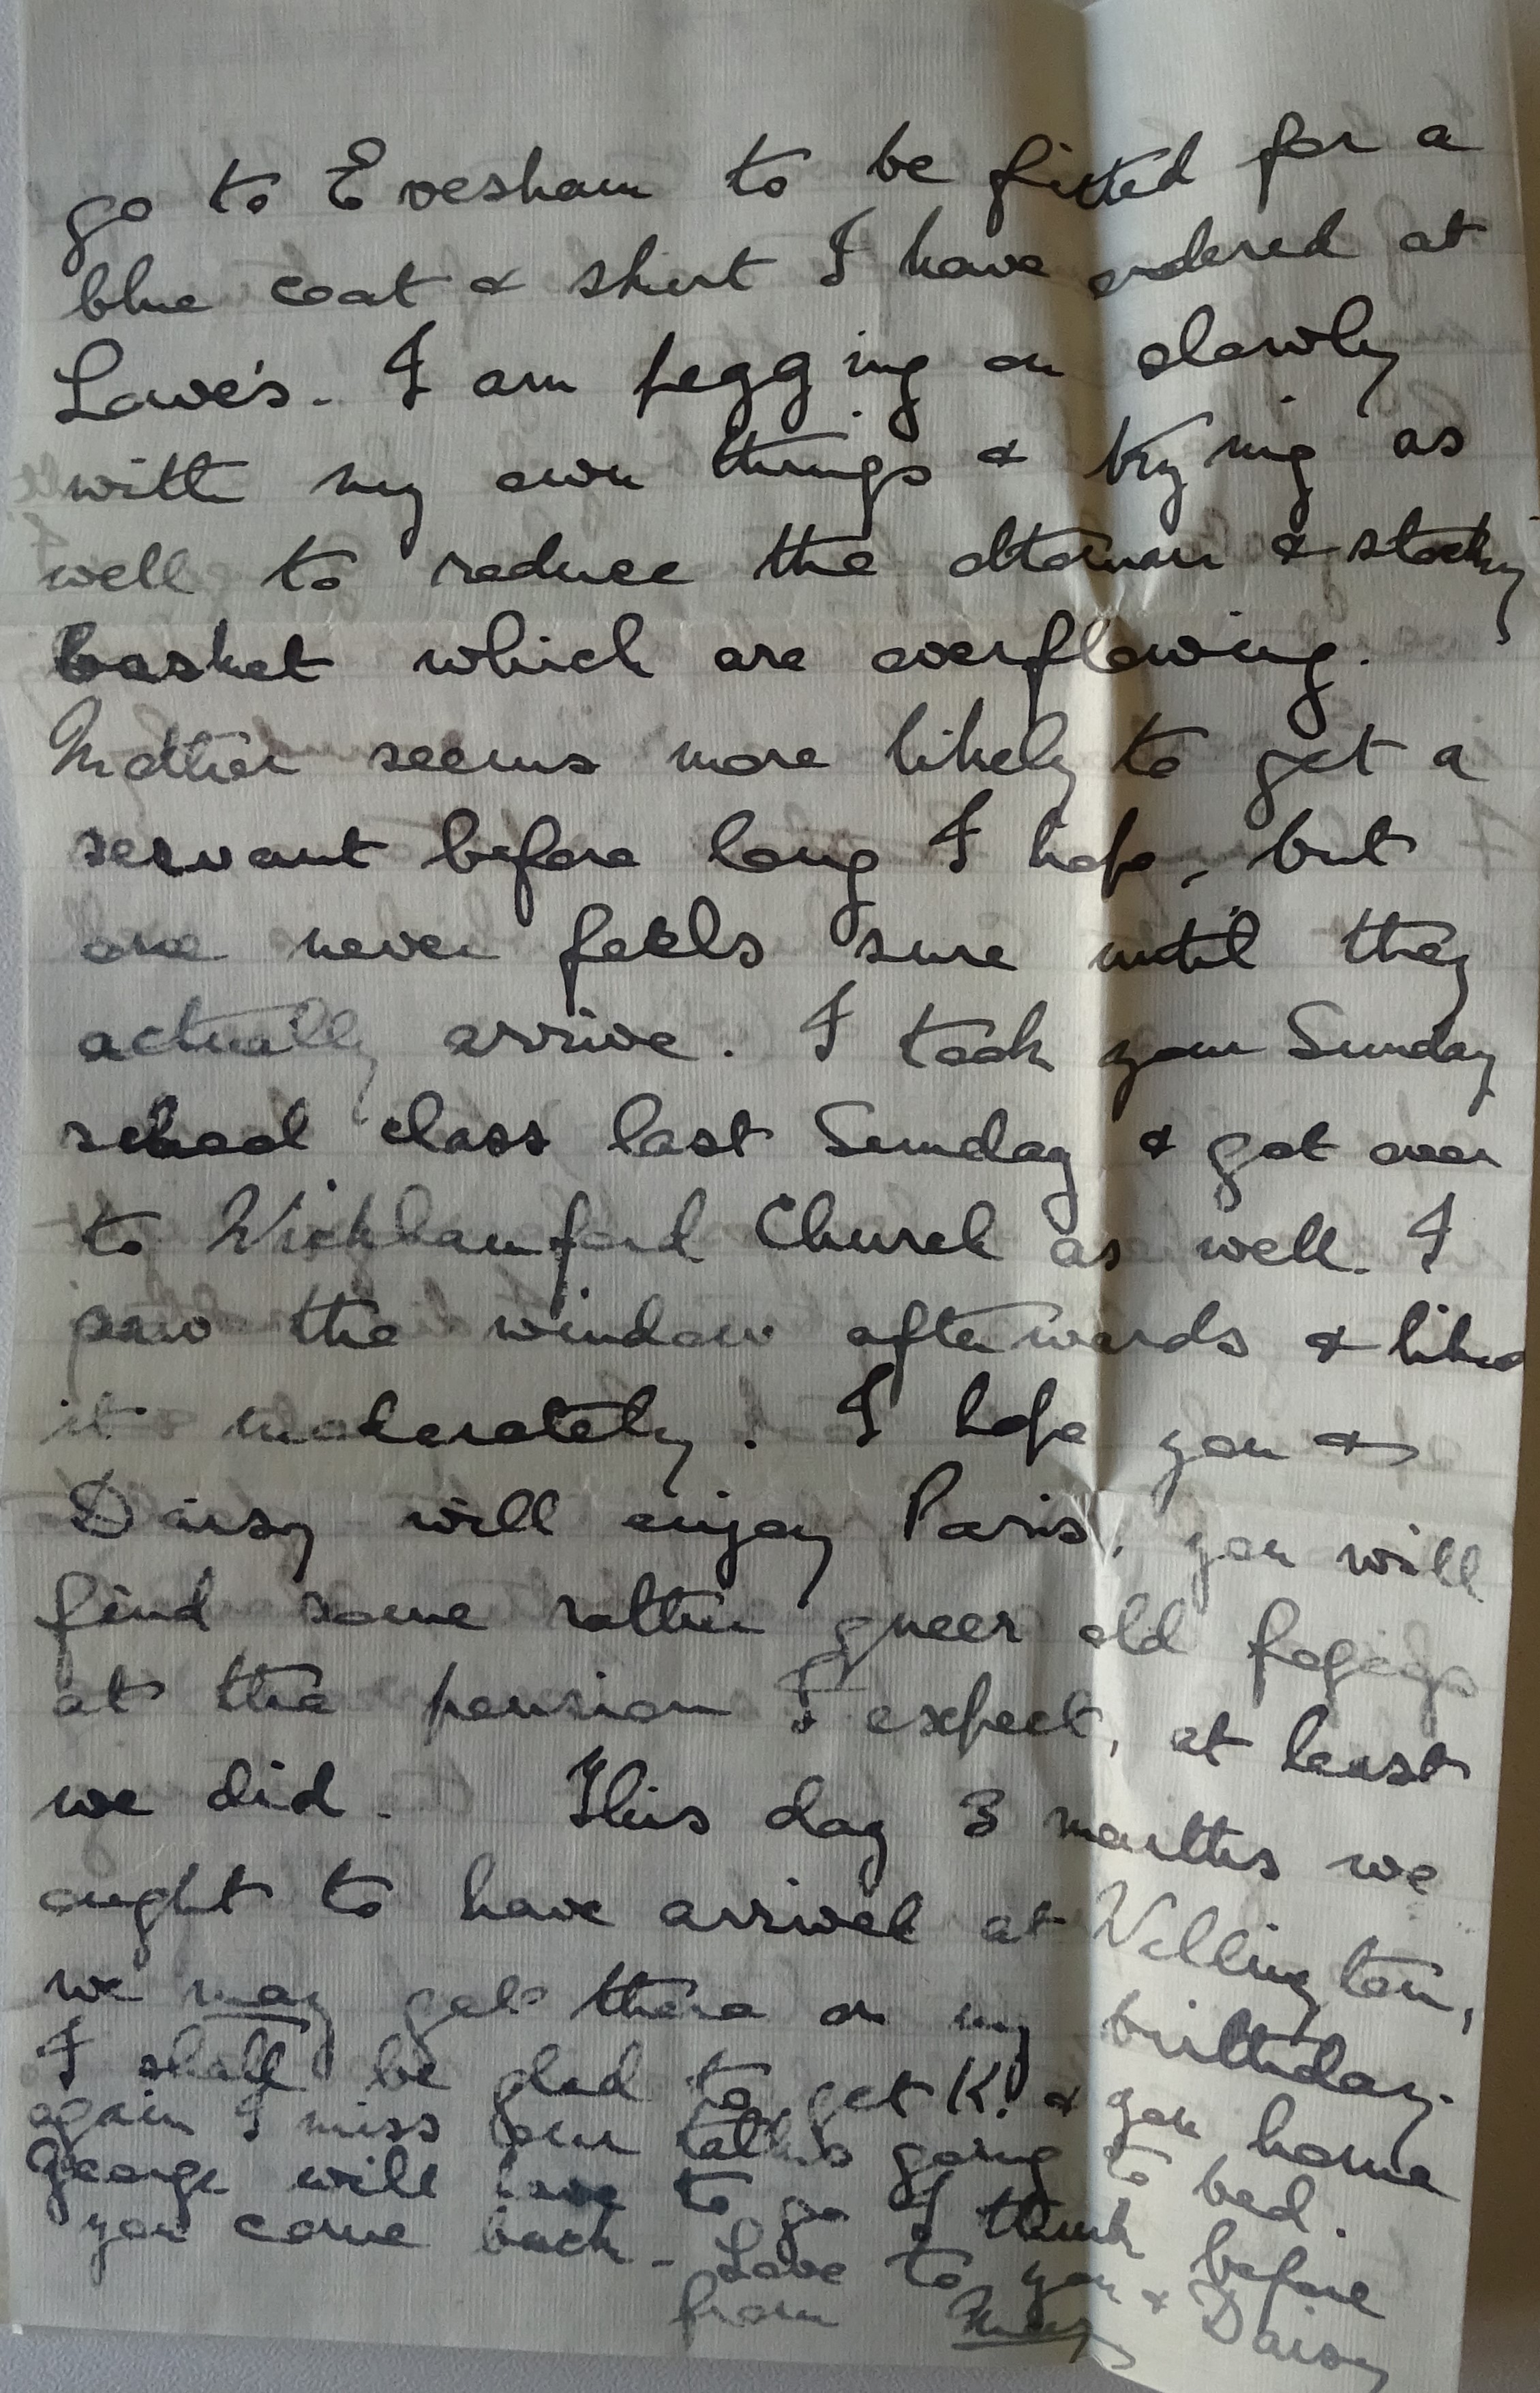 go to Evesham to be fitted for a
blue coat & skirt I have ordered at
Lowe's. I am pegging on slowly
with my own things & trying as
well to reduce the ottoman & stocking
basket which are overflowing.
Mother seems more likely to get a
servant before long I hope, but
one never feels sure until they
actually arrive. I took your Sunday
school class last Sunday & got over
to Wickhamford Church as well. I
saw the window afterwards & liked
it moderately. I hope you &
Daisy will enjoy Paris, you will
find some rather queer old fogeys
at the pension I expect, at least
we did. This day 3 months we
ought to have arrived at Wellington,
we may get there on my birthday.
I shall be glad to get K. & you home
again I miss our talks going to bed.
George will have to go I think before
you come back - Love to you & Daisy
from